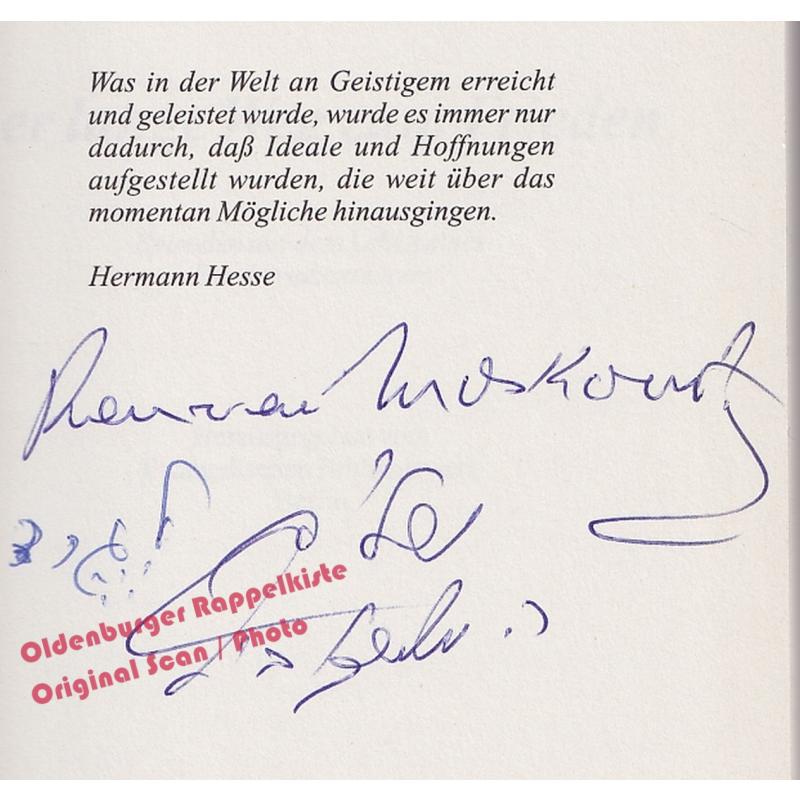 Was in der Welt an Geistigem erreicht
und geleistet wurde, wurde es immer nur
dadurch, daß Ideale und Hoffnungen
aufgestellt wurden, die weit über das
momentan Mögliche hinausgingen.
Hermann Hesse
Moskovitz
Oldenburger Rappelkiste
Original Scan | Photo